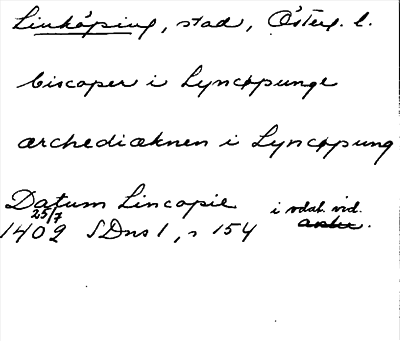 Linköping, stad, Österg. l.
biscoper i Lyncøpunge
ærchediæknen i Lyncøpung
Datum Lincopie i vdat. vid.
25/7
1402 SDns 1, s 154